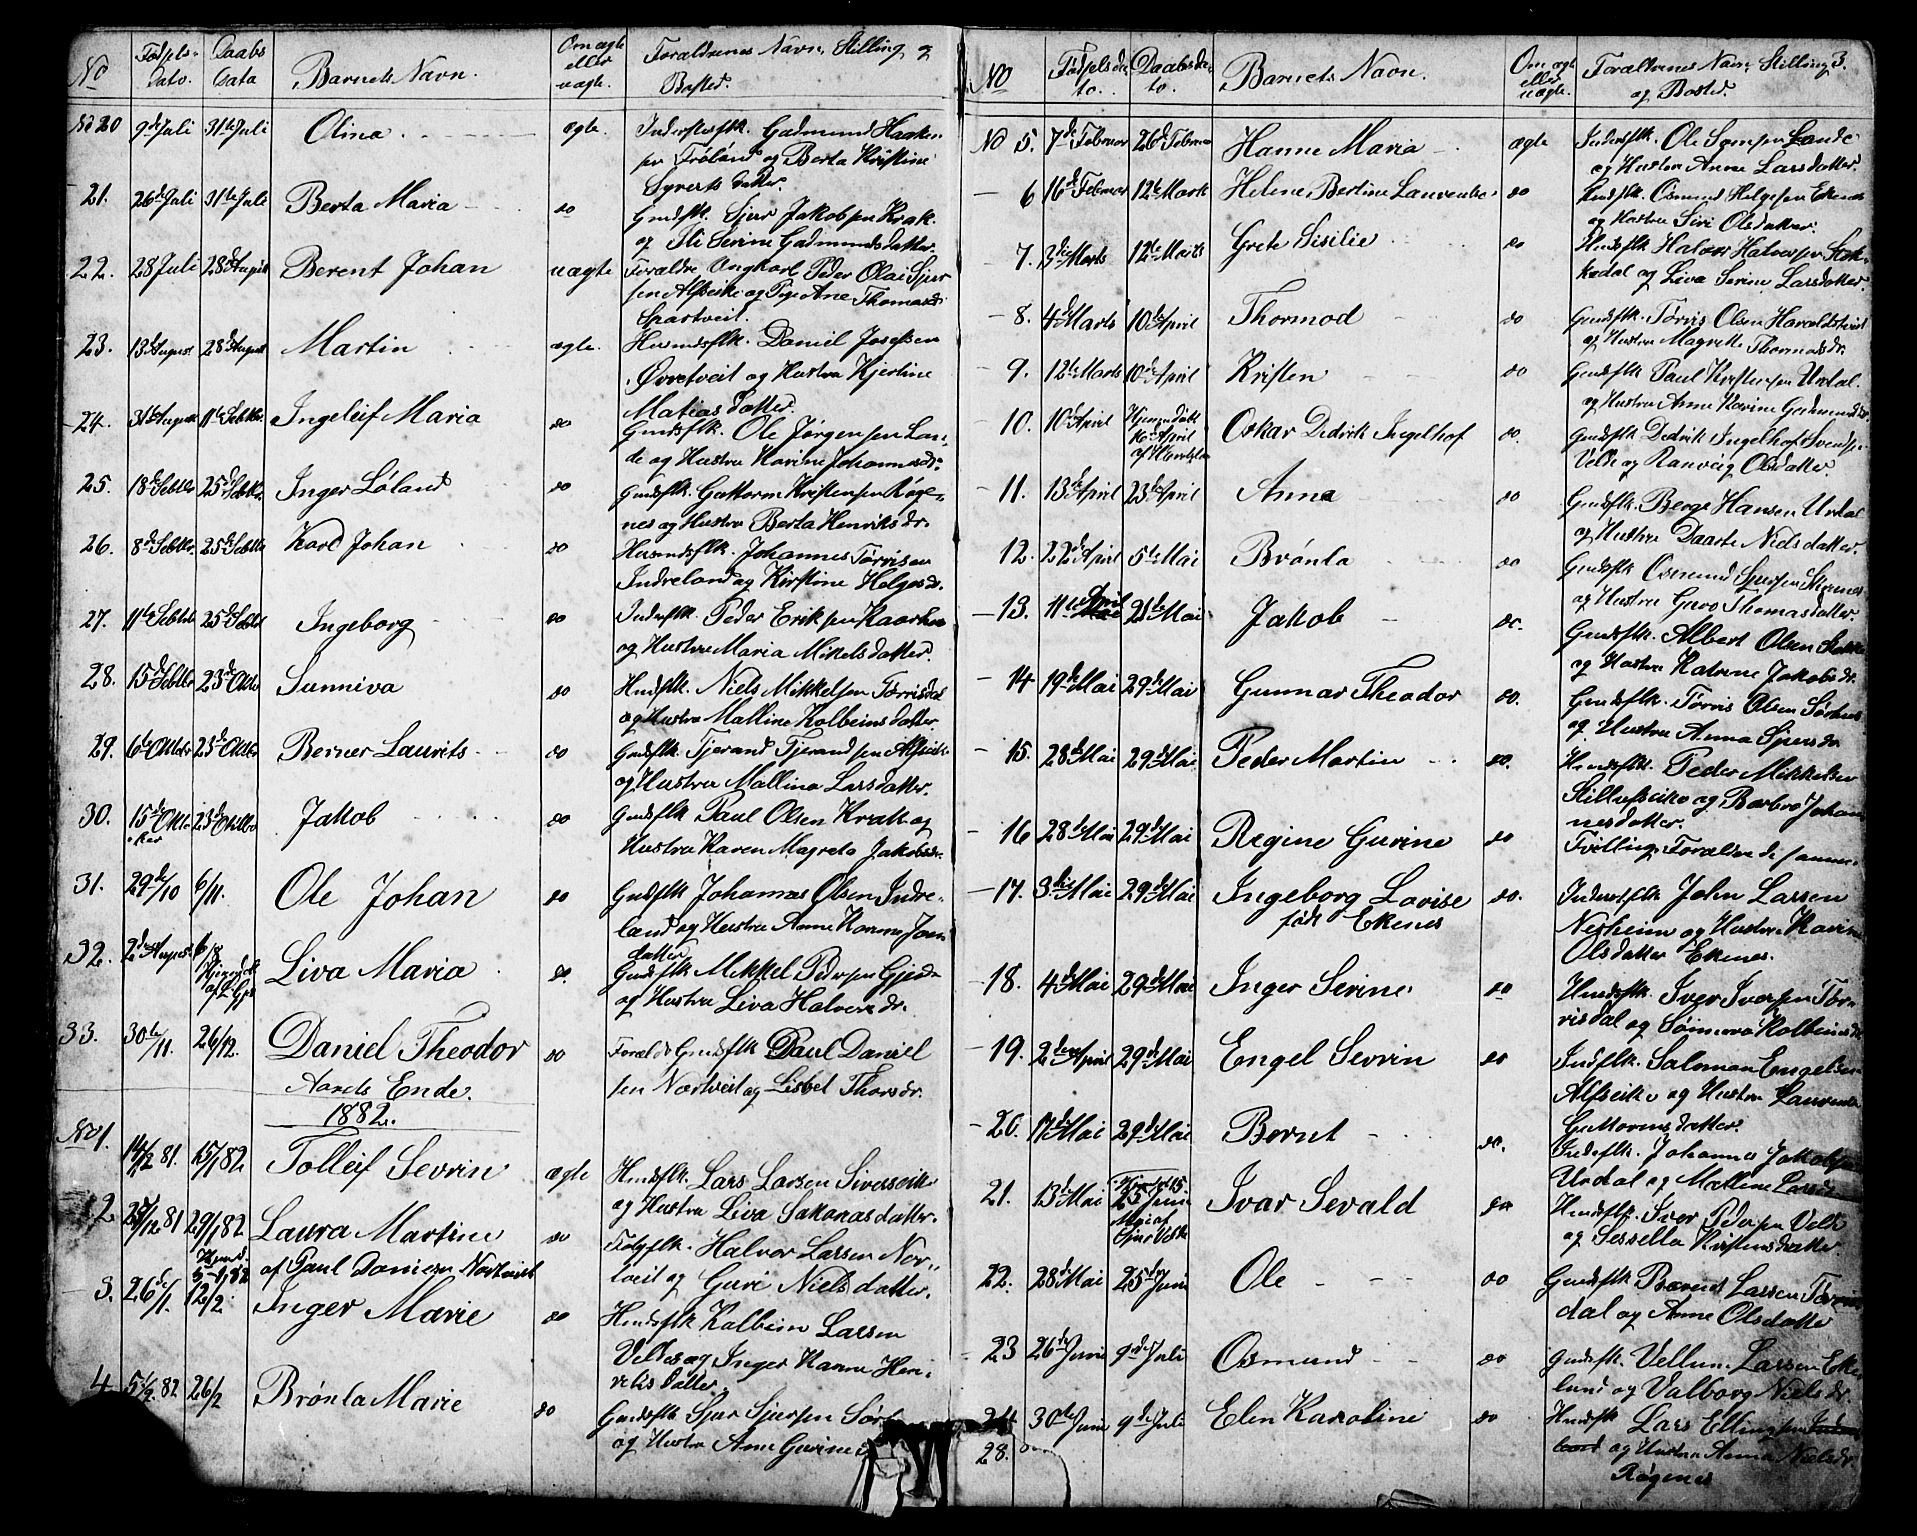 No
Fødsels- Dato.
Daabs Data
Barnets Navn.
Om ægte eller uægte.
Forældrenes Navn, Stilling og Bosted.
No 20 9de Juli 31te Juli Olina ægte. Inderstsflk. Gudmund Haaken-
sen Frøland og Berta Kristine
Syverts datter.
21. 26de Juli 31te Juli Berta Maria do Gmdsflk. Sjur Jakobsen Krak.
og Eli Serine Gudmunds datter.
22. 28 Juli 28de August Berent Johan uægte Forældre Ungkarl Peder Olai Sjur
sen Alfseike og Pige Ane Thomasdr
Spartveit.
23. 13de August 28de August Martin ægte. Husmdsflk. Daniel Josefsen
Øvretveit og Hustru Kjerline
Matias datter.
24. 31te August 11te Sebtbr. Ingeleif Maria do Gmdsflk. Ole Jørgensen Lan-
de og Hustru Karine Johannesdr.
25. 18de Sebtbr 25de Sebtbr. Inger Løland do Gmdsflk. Guttorm Kristensen Røge-
nes og Hustru Berta Henriksdr.
26. 8de Sebtbr. 25de Sebtbr Karl Johan do Husmdsflk. Johannes Tørrisen
Indreland og Kirstine Helgesdr.
27. 11te Sebtbr 25de Sebtbr Ingeborg do Inderflk. Peder Eriksen Kaarhus
og Hustru Maria Mikels datter.
28. 15de Sebtbr 23de Oktbr Sunniva do Hmdsflk. Niels Mikkelsen Tørrisdal
og Hustru Malline Kolbeins datter
29. 6te Oktbr 23de Oktbr Berner Laurits do Gmdsflk. Tjerand Tjerandsen Alfseike
og Hustru Mallina Larsdatter.
30. 15de Okto
ber 23de Oktbr Jakob do Gmdsflk Paul Olsen Krak og
Hustru Karen Magreta Jakobsdr.
31. 29de/10 6/11. Ole Johan do Gmdsflk Johannas Olsen Indre-
land og Hustru Anne Karine Jon
datter.
32. 2den August 6/8
Hjemdøbt
af L. Liva Maria do. Gmdsflk Mikkel Pedersen Gjerde
og Hustru Liva Halvorsdr.
33. 30te/11. 26/12. Daniel Theodor do Forældr Gmdsflk Paul Daniel
sen Nortveit og Lisbet Thorsdr.
Aarets Ende.
1882.
No 1. 14/12 81. 15/1 82. Tolleif Sevrin ægte Hmdsflk. Lars Larsen Siverseik
og Hustru Liva Sakariasdatter.
2 25/12 81 29/1 82 Laura Martine do Folgflk. Halvor Larsen Nor-
tveit og Guri Niels datter.
Hjemd
5-1 82 af Paul Danielsen Nortveit
3. 26de/1. 12/2. Inger Marie do Hmdsflk Kolbein Larsen
Velde og Inger Karine Hen-
riks datter.
4 5/2. 82 26/2 Brønla Marie do Gmdsflk Sjur Sjursen Sør
og Hustru Ane Gurine
No
Fødselsda-
to.
Daabsda-
to.
Barnets Navn.
Om ægte eller uægte.
Forældrenes Navn, Stilling 3.
og Bosted.
No 5. 7de Februar 26de Februar Hanne Maria ægte Indersflk. Ole Samsen Lande
og Hustru Anne Larsdatter.
6 16de Februar 12te Marts Helene Bertine Laurentse do Gmdsflk. Osmund Helgesen Ekenes
og Hustru Siri Olsdatter.
7. 3die Marts 12te Marts Grete Sisilie do Hmdsflk Halvor Halvorsen Stok-
kedal og Liva Serine Larsdatter.
8. 4de Marts 10de April Thormod do Gmdsflk. Tørris Olsen Haraldstveit
og Hustru Magrette Thormodsdr.
9. 12te Marts 10de April Kristen do Gmdsflk Paul Kristensen Urdal
og Hustru Anne Karine Gudmundsdr
10. 10de April Hjemmedøbt
16de April Oskar Dedrik Ingelhof do. Gmdsflk Dedrik Ingelhof Svendsen
Velde og Ranveig Olsdatter.
11. 13de April 23de April Anna do Gmdsflk. Berge Hansen Urdal
og Hustru Daarte Niels datter.
12. 22de April 5te Mai Brønla do Gmdsflk Osmund Sjursen Ekenes
og Hustru Guro Thomasdatter.
13. 11te April 21de Mai Jakob do. Gmdsflk. Albert Olsen Stokke
og Hustru Katrine Jakobsdr.
14 19de Mai 29de Mai Gunnar Theodor do. Gmdsflk. Tørris Olsen Sørhus
og Hustru Anna Sjursdr
15. 28de Mai 29de Mai Peder Martin do. Hmdsflk. Peder Mikkelsen
Stillufseike og Barbro Johan
nesdatter.
16 28de Mai 29de Mai Regine Gurine do Tvilling. Forældre de samme
17. 3die Mai 29de Mai Ingeborg Lovise
født Ekenes do. Inderstflk John Larsen
Nesheim og Hustru Karine
Olsdatter Ekenes.
18. 4de Mai 29de Mai Inger Serine do Hmdsflk. Iver Iversen Tør-
risdal og Sønneva Kolbeinsdr
19. 2den April 29de Mai Engel Sevrin do Indflk. Salomon Engelsen
Alfseike og Hustru Laurense
Guttormsdatter.
20. 17de Mai 29de Mai Bernt do. Indsflk. Johannes Jakobsen
Urdal og Malline Larsdr
21. 13de Mai 25 Juni
Ivar Sevald do Hmdsflk. Iver Pedersen Velde
og Sessella Kristensdatter.
22. 28de Mai 25de Juni Ole do Gmdsflk Barent Larsen Tørris
dal og Anne Olsdatter
23 26de Juni 9de Juli Osmund do Gmdsflk. Vellum Larsen Eike
land og Valborg Nielsdr.
24 30te Juni 9de Juli Elen Karoline do Hmdsflk Lars Ellingsen Indre
land og Hustru Anna Nielsdr.
Røgenes
28.